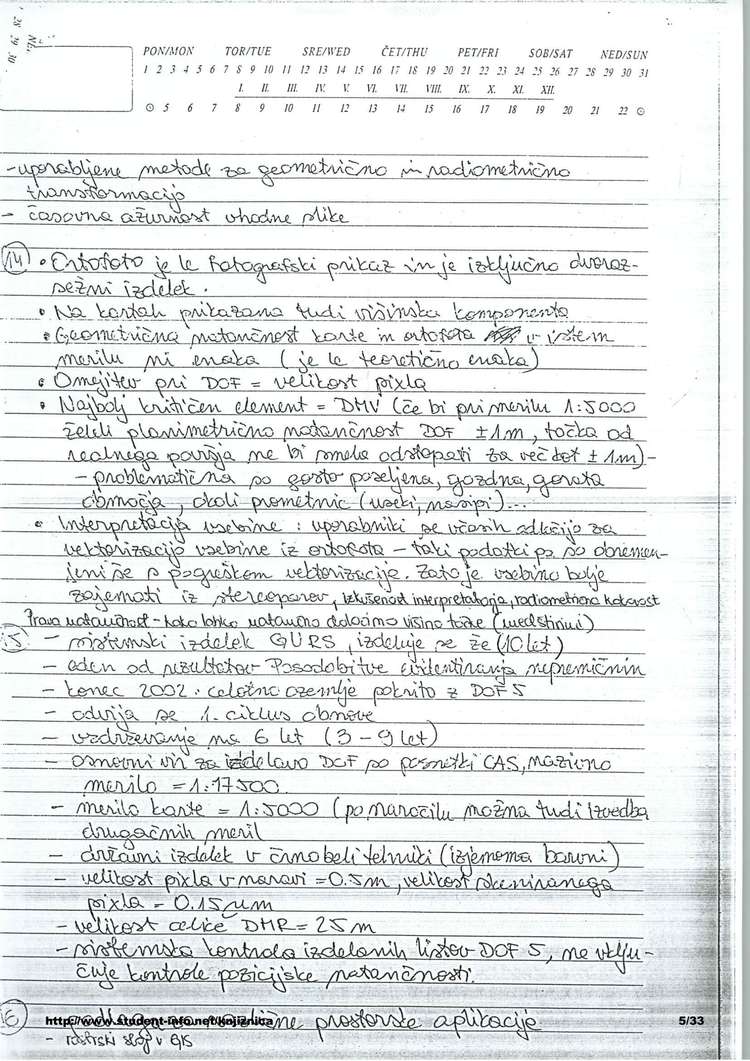 PON/MON TOR/TUE SRE/WED ČET/THU PET/FRI SOB/SAT NED/SUN
1 2 3 4 5 6 7 8 9 10 11 12 13 14 15 16 17 18 19 20 21 22 23 24 25 26 27 28 29 30 31
I. II. III. IV. V. VI. VII. VIII. IX. X. XI. XII.
5 6 7 8 9 10 11 12 13 14 15 16 17 18 19 20 21 22
- uporabljene metode za geometrično in radiometrično
transformacijo
- časovna ažurnost vhodne slike
14 • Ortofoto je le fotografski prikaz in je izključno dvoraz-
sežni izdelek.
• Na kartah prikazana tudi višinska komponenta
• Geometrična natančnost karte in ortofota v istem
merilu ni enaka (je le teoretično enaka)
• Omejitev pri DOF = velikost pixla
• Najbolj kritičen element = DMV (če bi pri merilu 1:5000
želeli planimetrično natančnost DOF ±1m, točka od
realnega površja ne bi smela odstopati za več kot ±1m) -
- problematična so gosto poseljena, gozdna, gorata
območja, okoli prometnic (useki, nasipi)...
• Interpretacija vsebine : uporabniki se včasih odločijo za
vektorizacijo vsebine iz ortofota - taki podatki pa so obremen-
jeni še s pogreškom vektorizacije. Zato je vsebino bolje
zajemati iz stereoparov, izkušenost interpretatorja, radiometrična kakovost
Prava natančnost - kako lahko natančno določimo višino točke (med slikimi)
15 - sistemski izdelek GURS, izdeluje se že (10 let)
- eden od rezultatov Posodobitve evidentiranja nepremičnin
- konec 2002. celotno ozemlje pokrito z DOF5
- odvija se 1. ciklus obnove
- vzdrževanje na 6 let (3 - 9 let)
- osnovni vir za izdelavo DOF so posnetki CAS, nazivno
merilo = 1:17500
- merilo karte = 1:5000 (po naročilu možna tudi izvedba
drugačnih meril
- državni izdelek v črnobeli tehniki (izjemoma barvni)
- velikost pixla v naravi = 0.5m, velikost skeniranega
pixla = 0.15 μm
- velikost celice DMR = 25m
- sistemska kontrola izdelanih listov DOF 5, ne vklju-
čuje kontrole pozicijske natančnosti.
16 prostorske aplikacije
http://www.student-info.net/knjiznica 5/33
- rastrski sloj v GIS